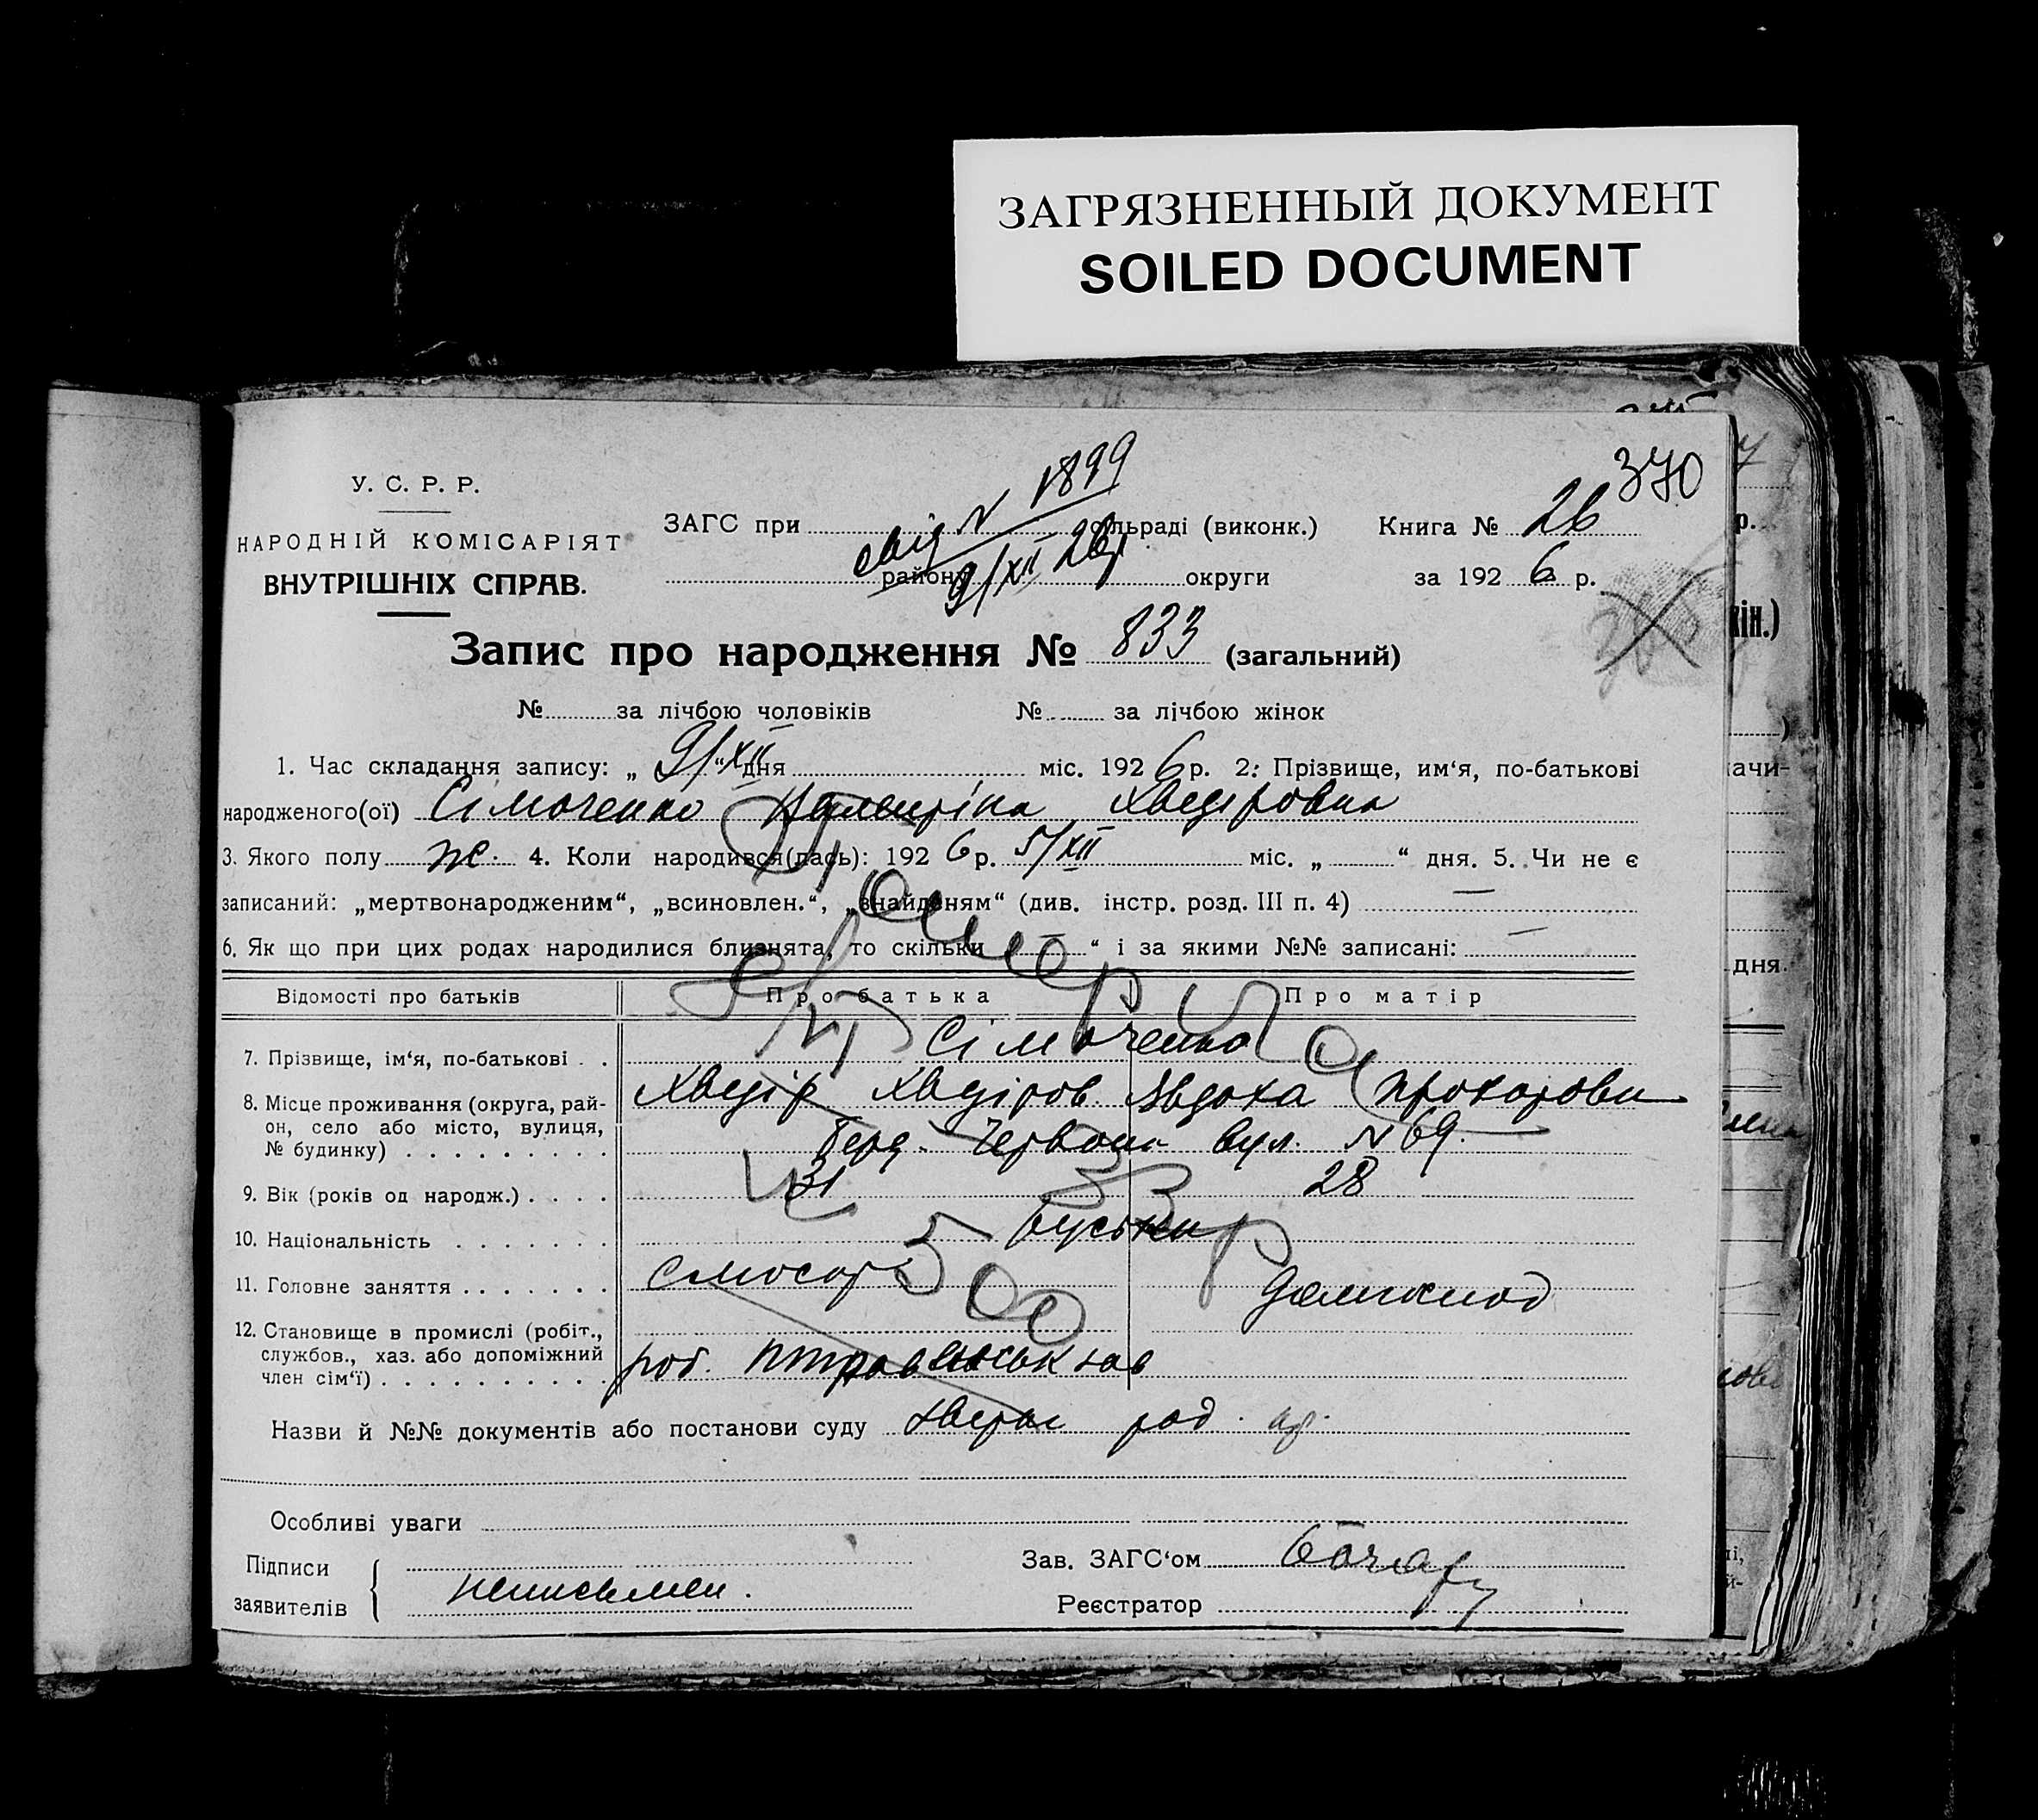 ЗАГРЯЗНЕННЫЙ ДОКУМЕНТ
SOILED DOCUMENT
370
У. С. Р. Р.
НАРОДНІЙ КОМІСАРІЯТ
ВНУТРІШНІХ СПРАВ.
N 1899
ЗАГС при сільраді (виконк.) Книга № 26
9/XII 26р
району округи за 192 6 р.
Запис про народження № 833 (загальний)
№ за лічбою чоловіків № за лічбою жінок
1. Час складання запису: „ 9/XII “ дня міс. 192 6 р. 2: Прізвище, им‘я, по-батькові
народженого(ої) Сімоченко Валентіна Хведіровна
3. Якого полу ж. 4. Коли народився(лась): 192 6 р. 5/XII міс. „ “ дня. 5. Чи не є
записаний: „мертвонародженим“, „всиновлен.“, „знайденям“ (див. інстр. розд. III п. 4) —
6. Як що при цих родах народилися близнята, то скільки — “ і за якими №№ записані: —
Відомості про батьків Про батька Про матір
7. Прізвище, ім‘я, по-батькові . . Сімоченко
Хведір Хведіров Явдоха Прохорови
8. Місце проживання (округа, рай-
он, село або місто, вулиця,
№ будинку) Червон вул. N 69.
9. Вік (років од народж.) 31 28
10. Національність руськи
11. Головне заняття слюсарь домхаз
12. Становище в промислі (робіт.,
службов., хаз. або допоміжний
член сім‘ї) роб.
Назви й №№ документів або постанови суду род.
Особливі уваги
Підписи
заявителів неписьмен.
Зав. ЗАГС‘ом
Реєстратор